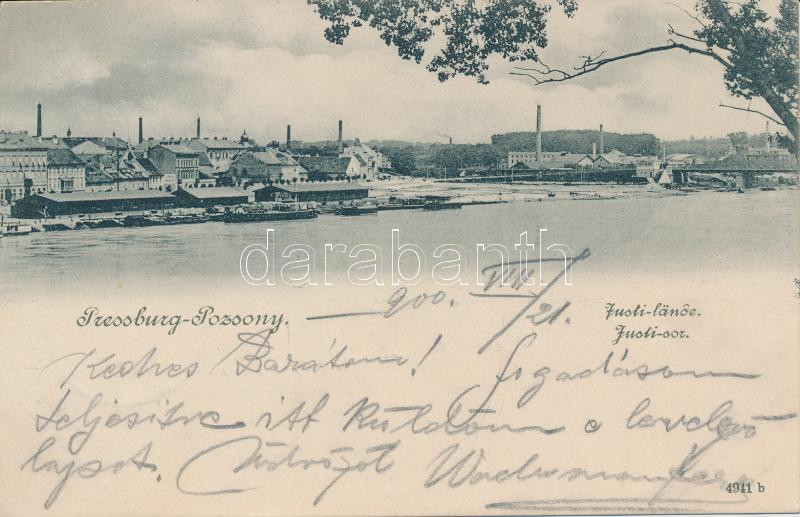 darabanth
Pressburg-Pozsony.
Justi-lände.
Justi-sor.
900. VIII/21.
Kedves Barátom! Fogadásom
teljesitve itt küldöm e levelező
lapot. Üdvözöl
4941 b